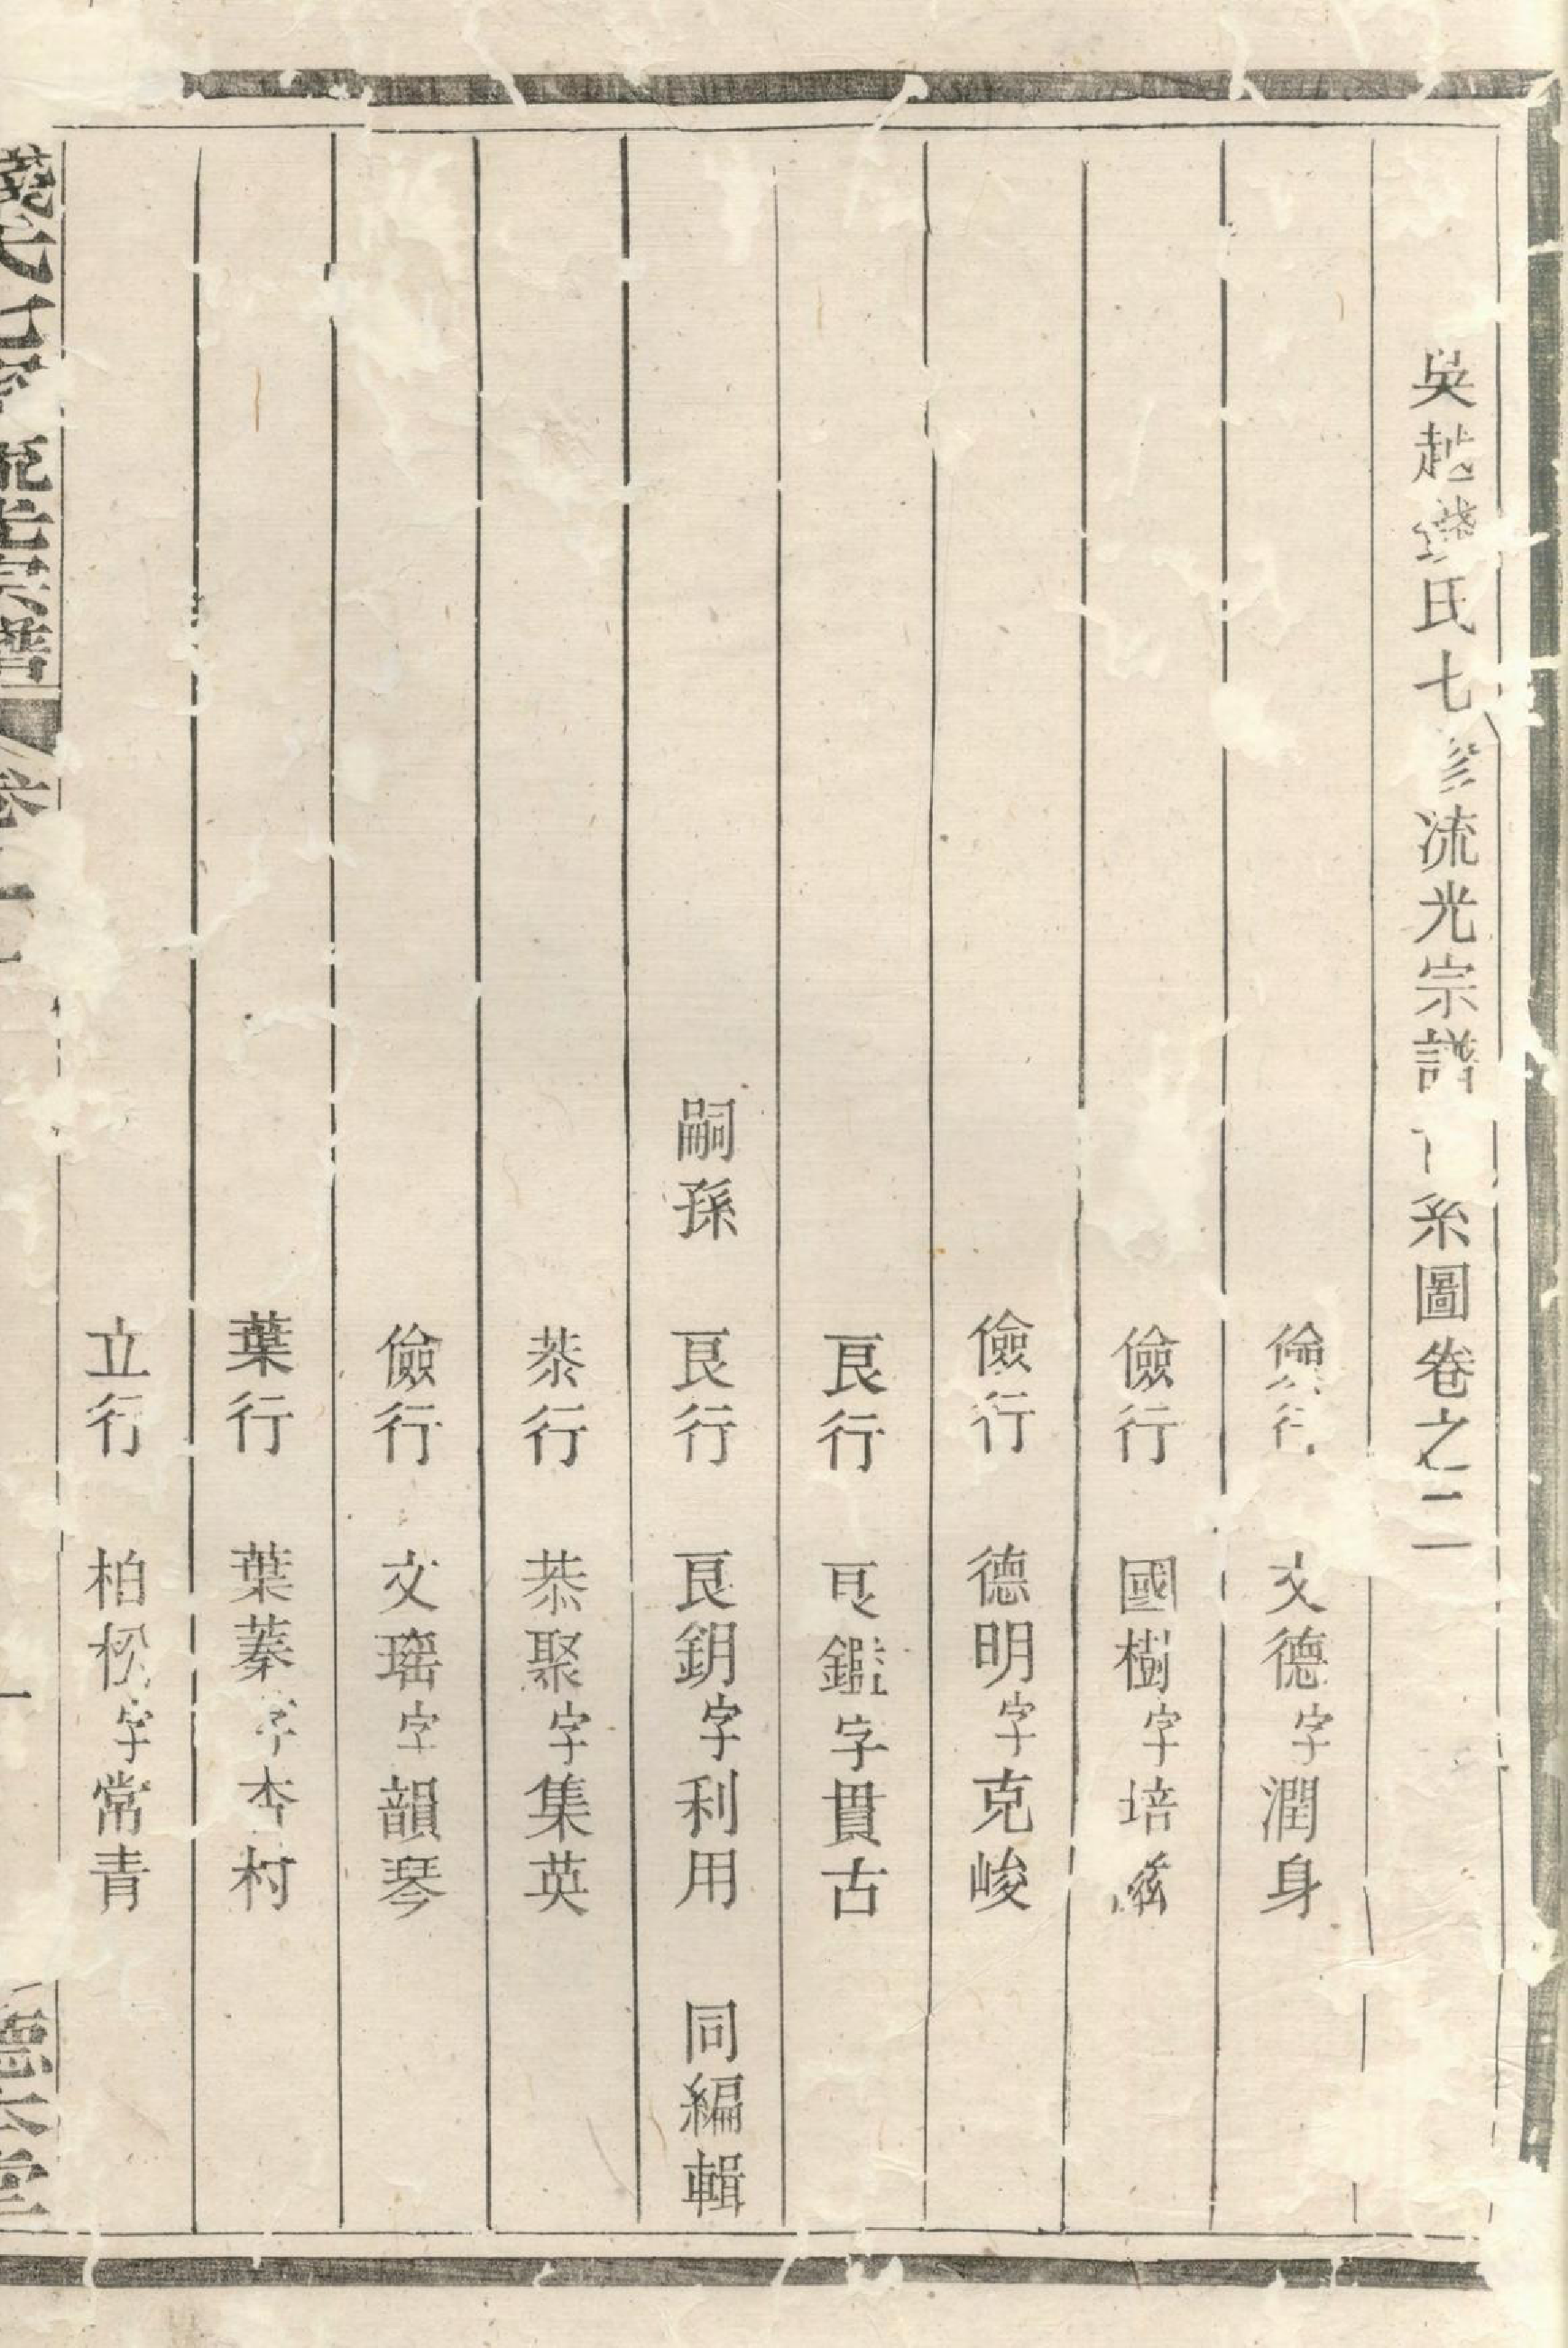 吳越錢氏七修流光宗譜 系圖卷之二
儉行 文德字潤身
儉行 國樹字培
儉行 德明字克峻
良行 良鑑字貫古
嗣孫 良行 良鈅字利用 同編輯
恭行 恭聚字集英
儉行 文瑶字韻琴
葉行 葉蓁字杏村
立行 柏松字常青
錢氏七修流光宗譜 卷 一 德 堂